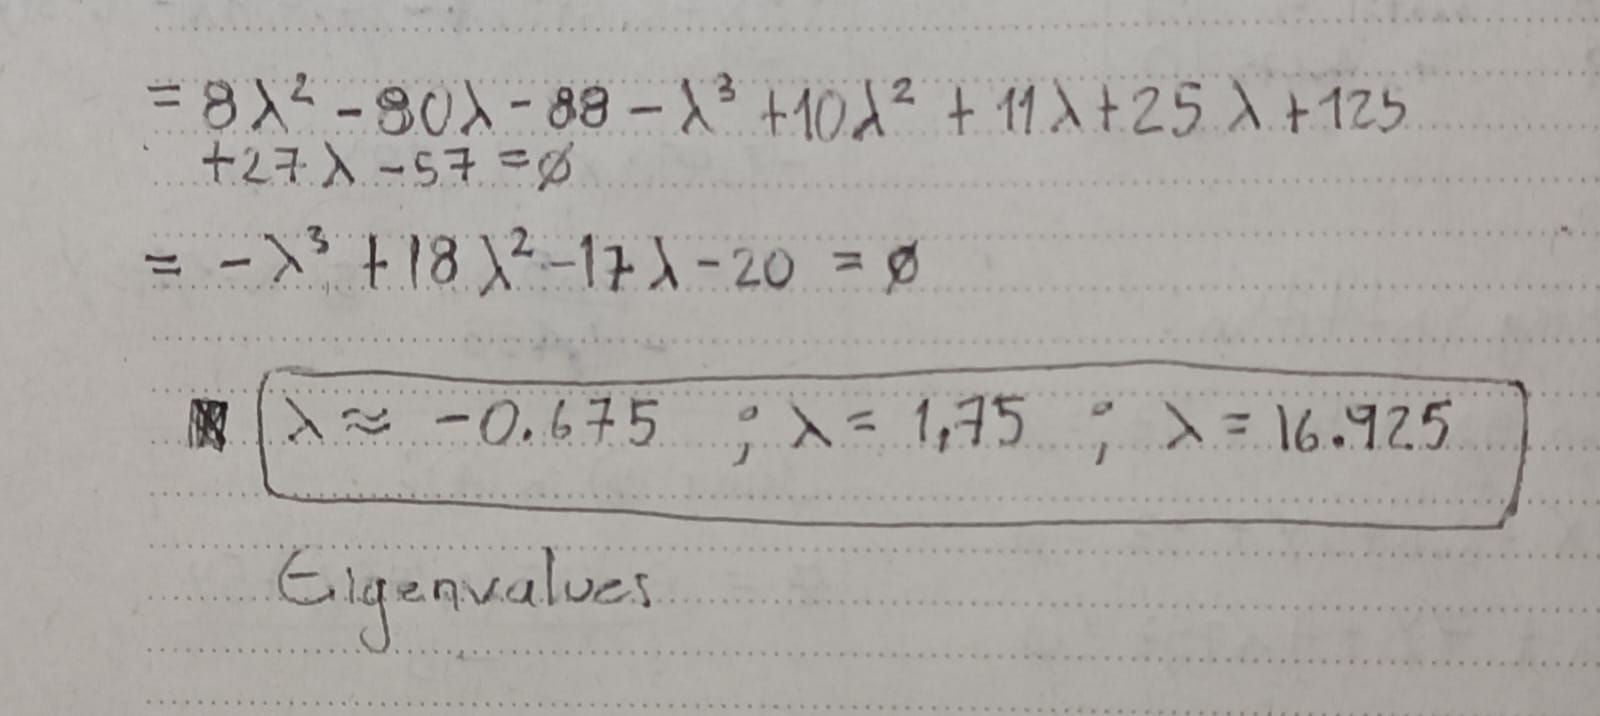 = 8λ² - 80λ - 88 - λ³ + 10λ² + 11λ + 25λ + 125
+ 27λ - 57 = ∅
= - λ³ + 18λ² - 17λ - 20 = ∅
λ ≈ -0.675 ; λ = 1,75 ; λ = 16.925
Eigenvalues